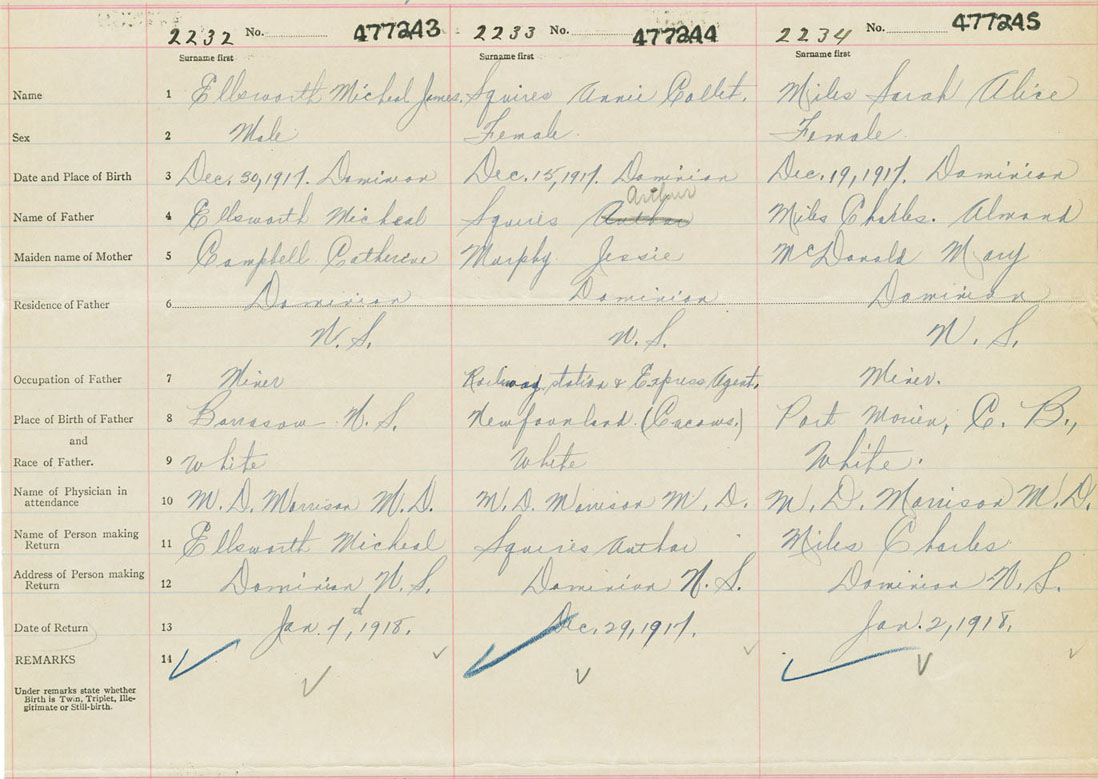 2232 No. 477243 2233 No. 477244 2234 No. 477245
Surname first Surname first Surname first
Name 1 Ellsworth Micheal James. Squires Annie Collet. Miles Sarah Alice
Sex 2 Male Female. Female.
Date and Place of Birth 3 Dec. 30, 1917. Dominion Dec. 15, 1917. Dominion Dec. 19, 1917. Dominion
Arthur
Name of Father 4 Ellsworth Micheal Squires Author Miles Charles. Almond
Maiden name of Mother 5 Campbell Catherine Murphy Jessie McDonald Mary
Residence of Father 6 Dominion Dominion Dominion
N. S. N. S. N. S.
Occupation of Father 7 Miner Railway station & Express Agent. Miner.
Place of Birth of Father 8 N. S. Newfounland Port Morien, C. B.,
and
Race of Father. 9 White White White.
Name of Physician in
attendance 10 M. D. Morrison M. D. M. D. Morrison M. D. M. D. Morrison M. D.
Name of Person making
Return 11 Ellsworth Micheal Squires Author Miles Charles
Address of Person making
Return 12 Dominion N. S. Dominion N. S. Dominion N. S.
Date of Return 13 Jan. 7, 1918. Dec. 29, 1917. Jan. 2, 1918.
REMARKS 14
Under remarks state whether
Birth is Twin, Triplet, Ille-
gitimate or Still-birth.